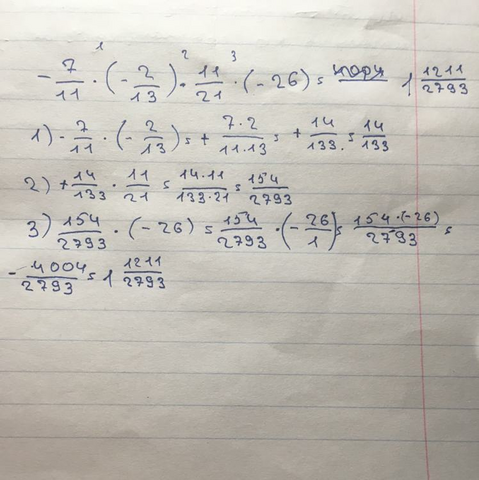 -7/11 ·¹ (-2/13) ·² 11/21 ·³ (-26) = 1 1211/2793
1) -7/11 · (-2/13) = + 7·2/11·13 = + 14/133. = 14/133
2) +14/133 · 11/21 = 14·11/133·21 = 154/2793
3) 154/2793 · (-26) = 154/2793 · (-26/1) = 154·(-26)/2793 =
-4004/2793 = 1 1211/2793